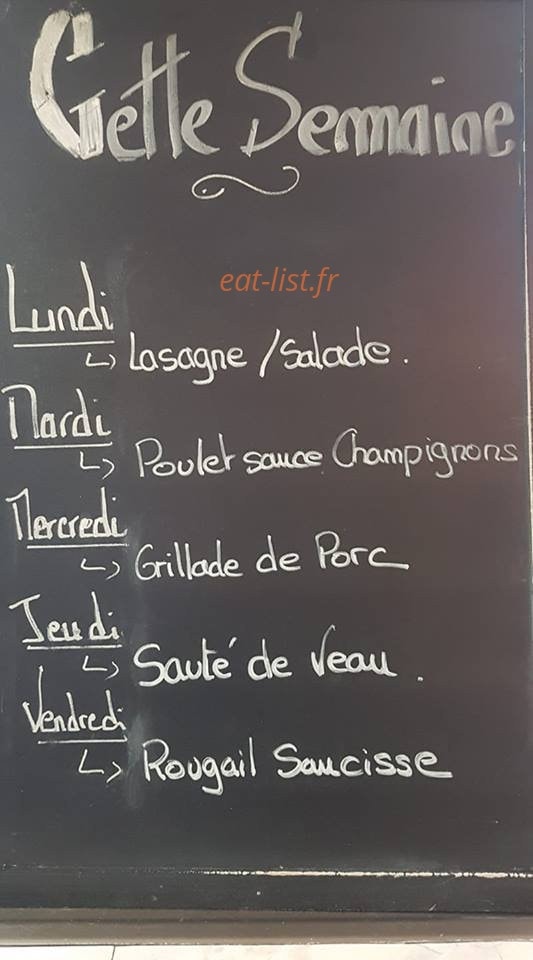 Cette Semaine
eat-list.fr
Lundi
↳ Lasagne / Salade.
Mardi
↳ Poulet sauce Champignons
Mercredi
↳ Grillade de Porc
Jeudi
↳ Sauté de Veau.
Vendredi
↳ Rougail Saucisse